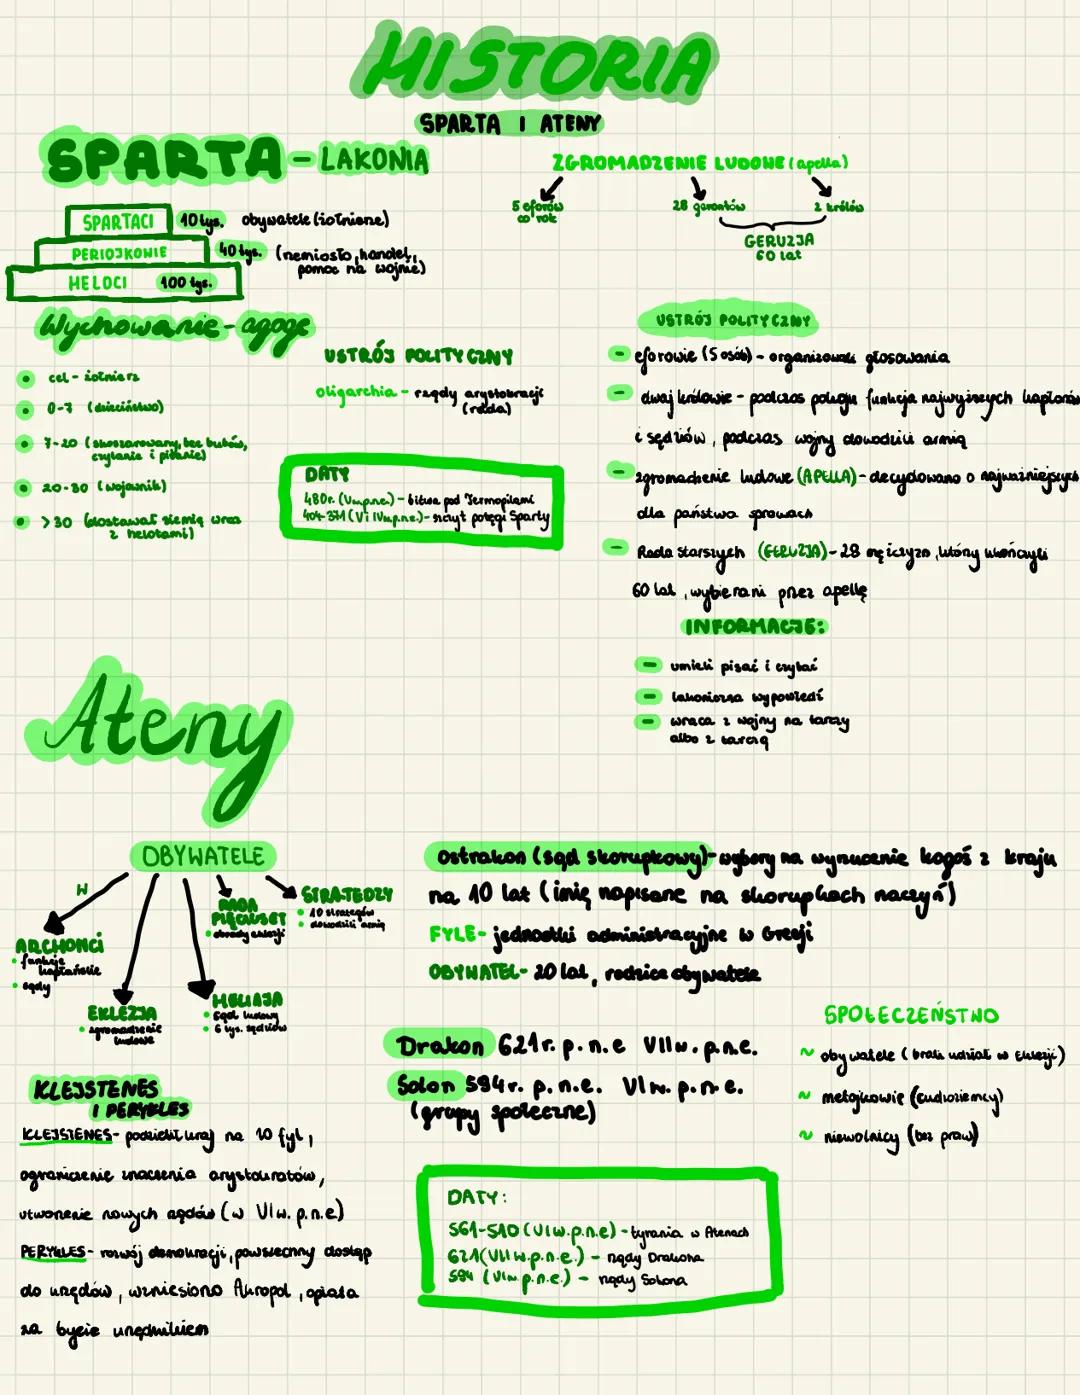 HISTORIA
SPARTA I ATENY
SPARTA - LAKONIA
SPARTACI 10 tys. obywatele (żołnierze)
PERIOJKOWIE 40 tys. (rzemiosło, handel,
pomoc na wojnie)
HELOCI 100 tys.
ZGROMADZENIE LUDOWE (apella)
5 eforów
co rok
28 gerontów
2 królów
GERUZJA
60 lat
Wychowanie - agoge
cel - żołnierz
0-7 (dzieciństwo)
7-20 (skoszarowany, bez butów,
czytanie i pisanie)
20-30 (wojownik)
>30 (dostawał ziemię wraz
z helotami)
USTRÓJ POLITYCZNY
oligarchia - rządy arystokracji
(rada)
DATY
480r. (V w.p.n.e.) - bitwa pod Termopilami
404-371 (V i IV w.p.n.e.) - szczyt potęgi Sparty
USTRÓJ POLITYCZNY
- eforowie (5 osób) - organizowali głosowania
- dwaj królowie - podczas pokoju funkcja najwyższych kapłanów
i sędziów, podczas wojny dowodzili armią
- zgromadzenie ludowe (APELLA) - decydowano o najważniejszych
dla państwa sprawach
- Rada Starszych (GERUZJA) - 28 mężczyzn, którzy ukończyli
60 lat, wybierani przez apellę
INFORMACJE:
- umieli pisać i czytać
- lakoniczna wypowiedź
- wraca z wojny na tarczy
albo z tarczą
Ateny
OBYWATELE
W
ARCHONCI
funkcje
kapłańskie
sądy
EKLEZJA
zgromadzenie
ludowe
HELIAJA
Sąd ludowy
6 tys. sędziów
RADA
PIĘCIUSET
obrady eklezji
STRATEDZY
10 strategów
dowodzili armią
Ostrakon (sąd skorupkowy) - wybory na wyrzucenie kogoś z kraju
na 10 lat (imię napisane na skorupkach naczyń)
FYLE - jednostki administracyjne w Grecji
OBYWATEL - 20 lat, rodzice obywatele
Drakon 621 r. p.n.e VII w. p.n.e.
Solon 594 r. p.n.e. VI w. p.n.e.
(grupy społeczne)
SPOŁECZEŃSTWO
~ obywatele (brali udział w Eklezji)
~ metojkowie (cudzoziemcy)
~ niewolnicy (bez praw)
KLEJSTENES
I PERYKLES
KLEJSTENES - podzielił kraj na 10 fyl,
ograniczenie znaczenia arystokratów,
utworzenie nowych rządów (w VI w. p.n.e)
PERYKLES - rozwój demokracji, powszechny dostęp
do urzędów, wzniesiono Akropol, opłata
za bycie urzędnikiem
DATY:
561-510 (VI w.p.n.e) - tyrania w Atenach
621 (VII w.p.n.e.) - rządy Drakona
594 (VI w. p.n.e.) - rządy Solona